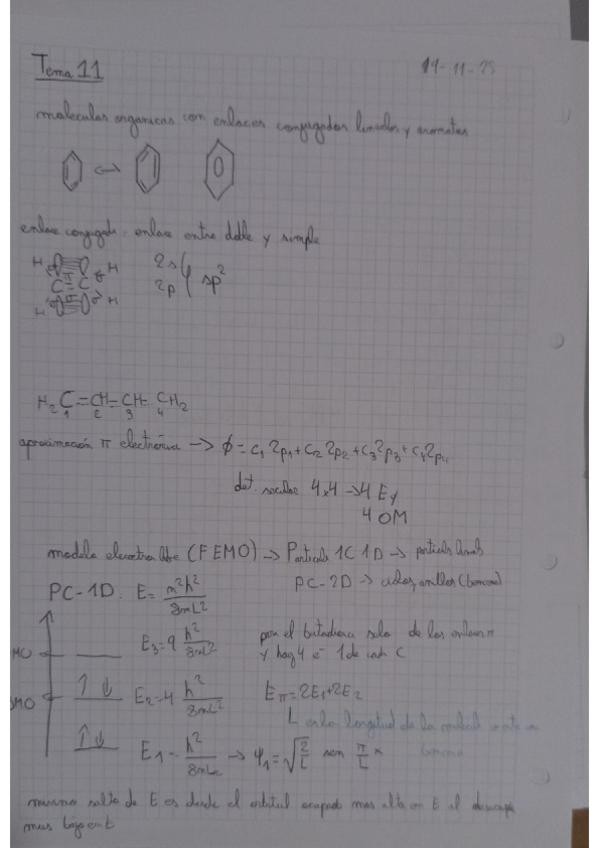 Tema 11
moleculas organicas con enlaces conjugados lineales y
enlace conjugado: enlace entre doble y simple
H H
C = C
H H
π
2s
2p
sp²
H₂C=CH-CH=CH₂
1 2 3 4
aproximación π electrónica → ϕ = c₁2p₁+c₂2p₂+c₃2p₃+c₄2p₄
det. secular 4x4 → 4 E y
4 OM
modelo electron libre (FEMO) → Particula 1C 1D →
PC-1D. E = n²h²/8mL²
PC-2D → anillos
E₃=9 h²/8mL²
para el butadieno solo de los enlaces π
y hay 4 e⁻ 1 de cada C
E₂=4 h²/8mL²
Eπ=2E₁+2E₂
L es la longitud de la
E₁= h²/8mL² → ψ₁=√(2/L) sen π/L x
salto de E es desde el orbital ocupado mas alto en E al
mas bajo en E